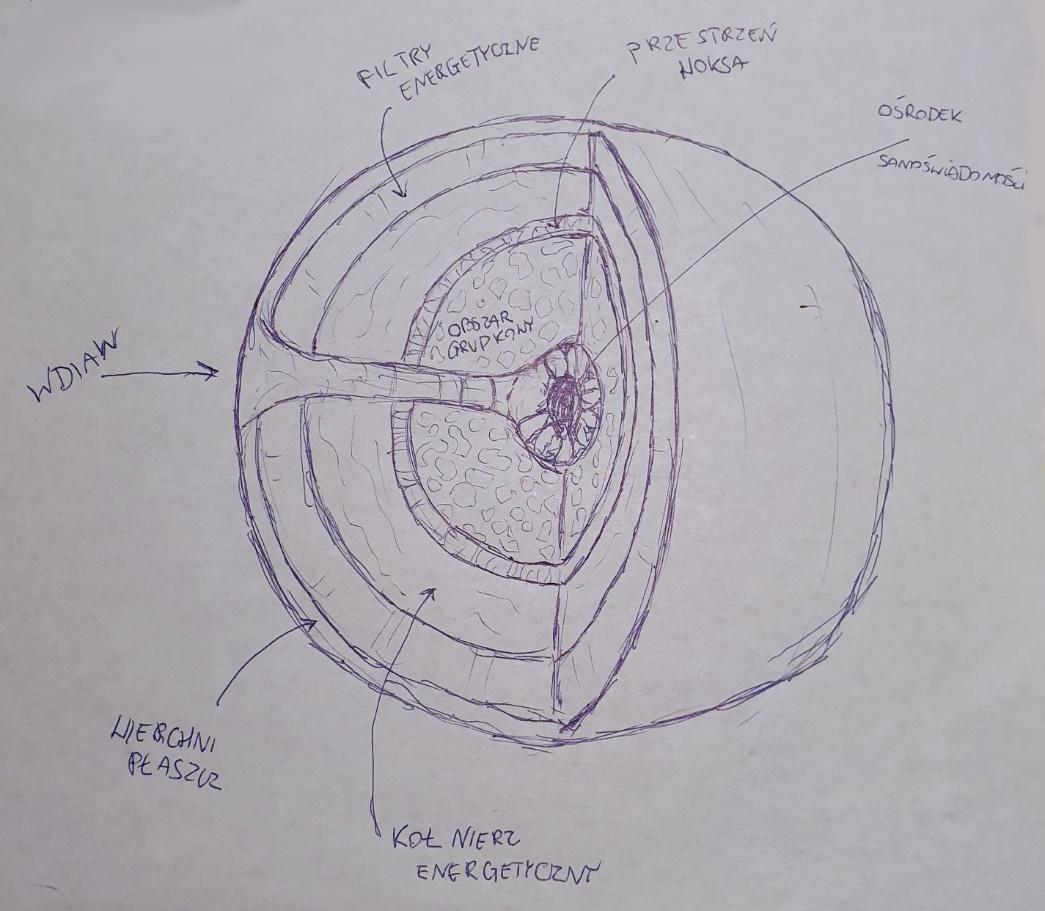 FILTRY
ENERGETYCZNE
PRZE STRZEŃ
NOKSA
OŚRODEK
SAMOŚWIADOMOŚCI
OBSZAR
GRUPKOWY
WDIAW
WIERCHNI
PŁASZCZ
KOŁNIERZ
ENERGETYCZNY